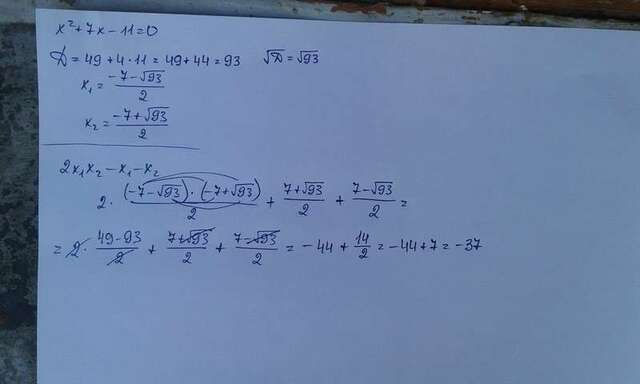 x²+7x-11=0
D = 49+4·11 = 49+44 = 93   √D = √93
x₁ = (-7-√93)/2
x₂ = (-7+√93)/2
2x₁x₂ - x₁ - x₂
2 · (-7-√93)·(-7+√93)/2 + (7+√93)/2 + (7-√93)/2 =
= 2 · (49-93)/2 + (7+√93)/2 + (7-√93)/2 = -44 + 14/2 = -44+7 = -37